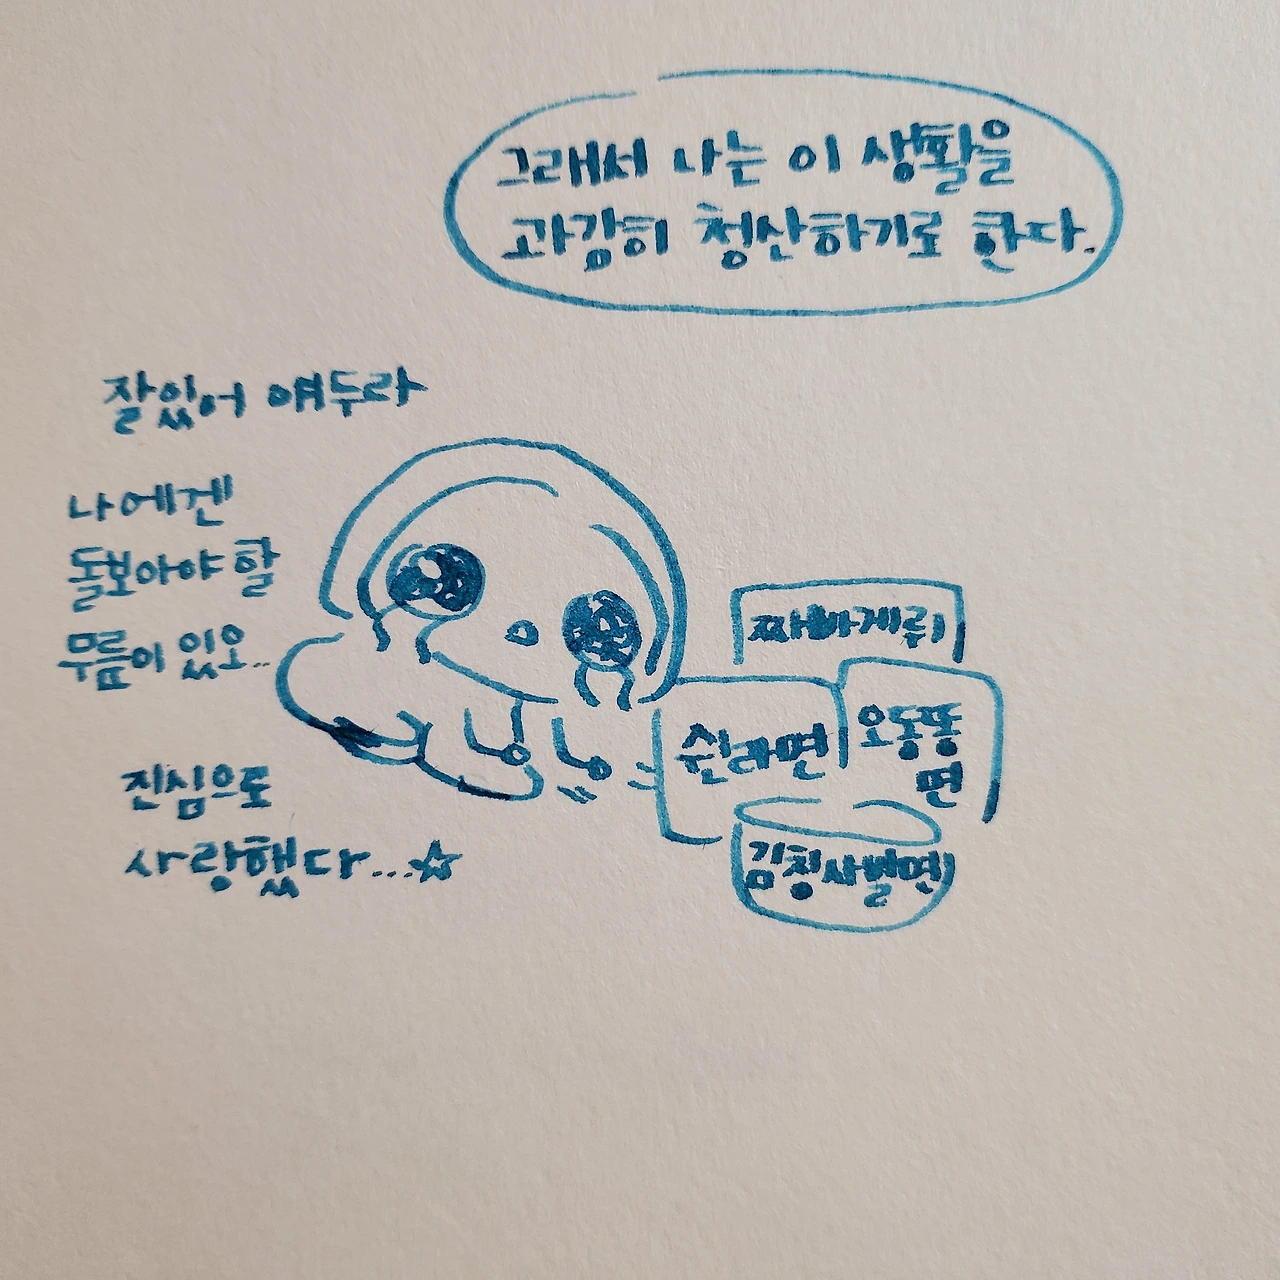 그래서 나는 이 생활을
과감히 청산하기로 한다.
잘있어 얘두라
나에겐
돌보아야 할
무릎이 있오..
진심으로
사랑했다...☆
짜바게뤼
쉰라면
오동똥
면
김칭사발면